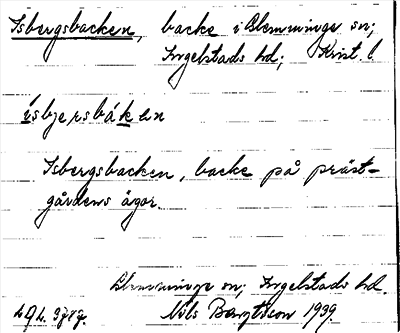 Isbergsbacken, backe i Glemminge sn;
Ingelstads hd; Krist. l.
ísbjersbáken
Isbergsbacken, backe på präst-
gårdens ägor.
Glemminge sn; Ingelstads hd.
Nils Bengtsson 1939.